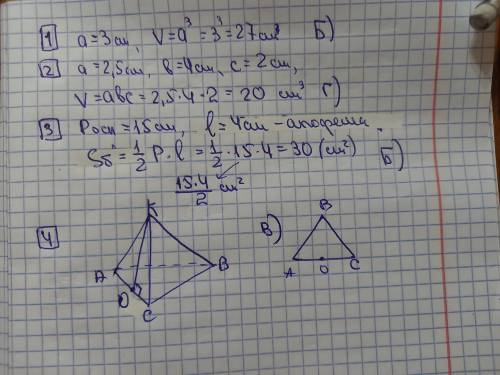 1 a=3см, V=a³=3³=27см³ Б)
2 a=2,5см, b=4см, c=2см,
V=abc=2,5·4·2=20 см³ Г)
3 Pосн=15см, l=4см-апофема.
Sб=1/2 P·l=1/2·15·4=30(см²) Б)
15·4/2 см²
4 K В) B
A B
D A O C
C